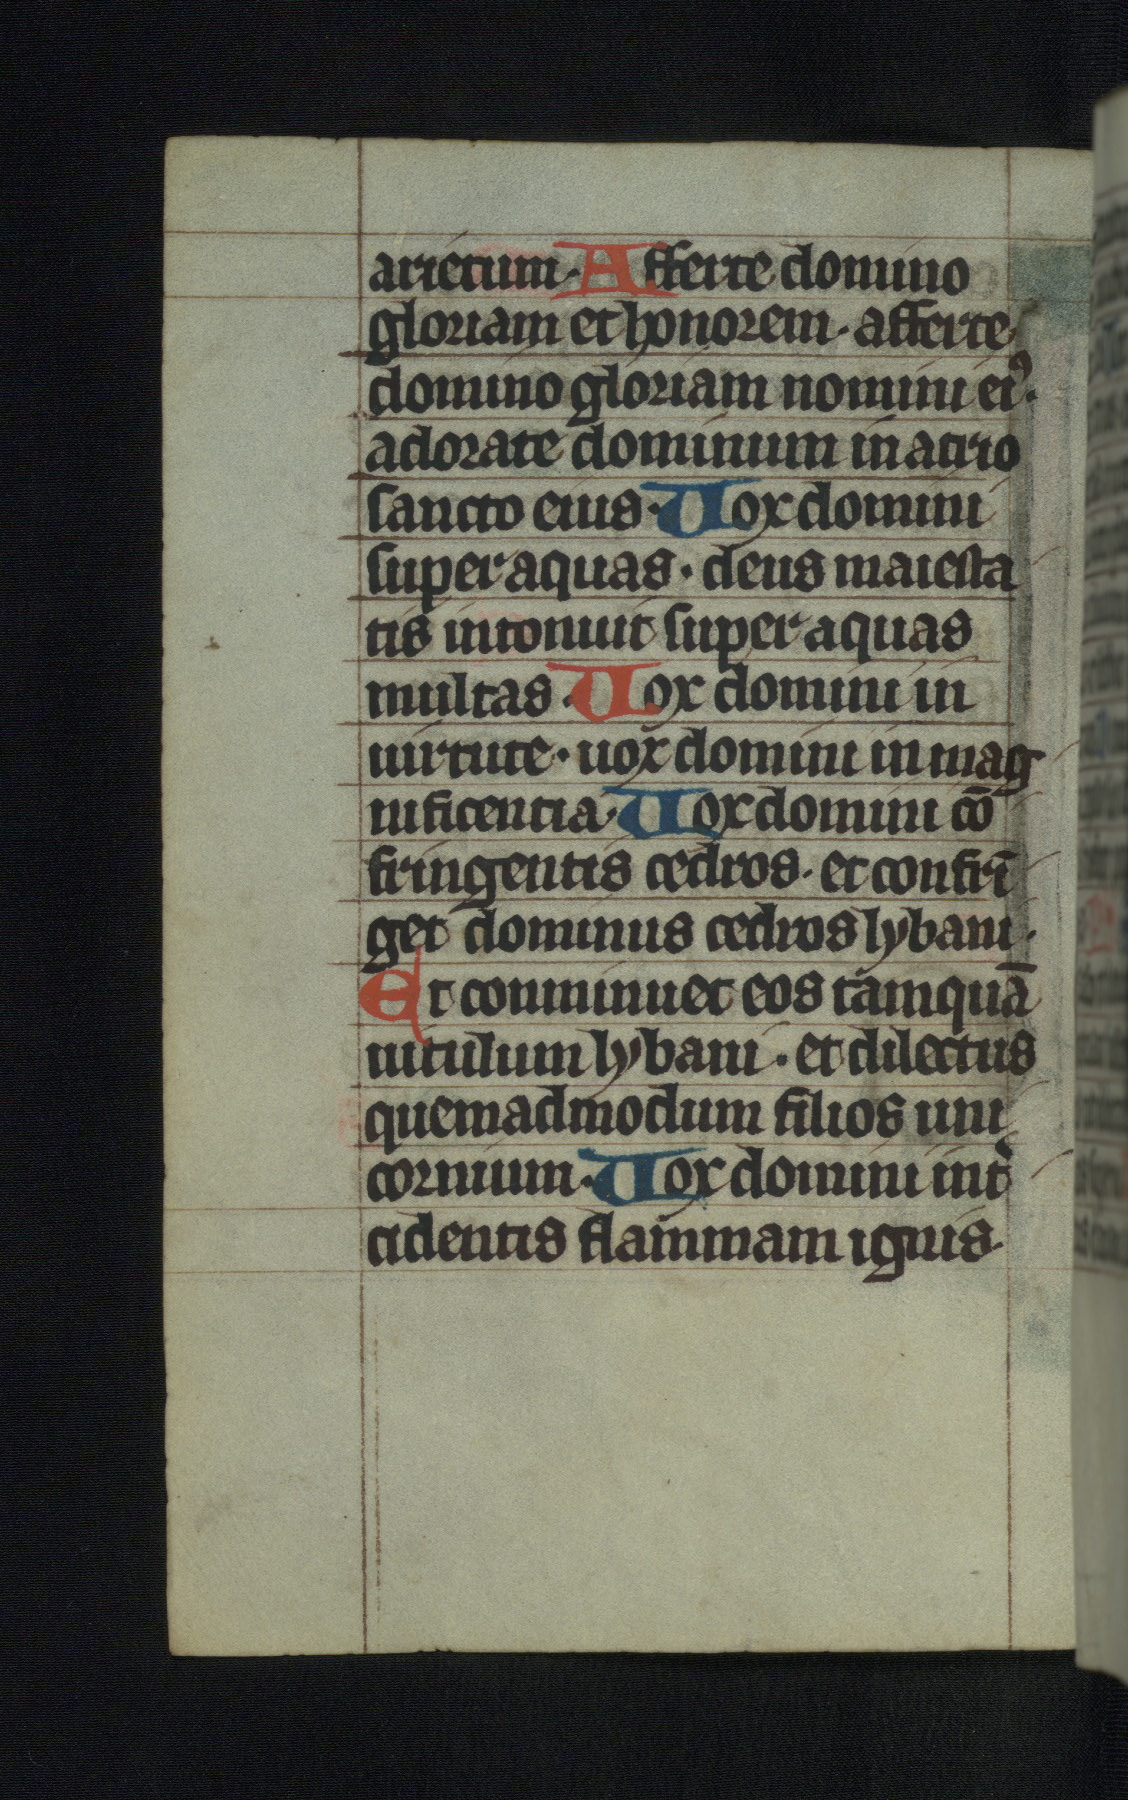 arietum. Afferte domino
gloriam et honorem. afferte
domino gloriam nomini eiꝰ.
adorate dominum in atrio
sancto eius. Uox domini
super aquas. deus maiesta
tis intonuit super aquas
multas. Uox domini in
uirtute. uox domini in mag
nificentia. Uox domini cō
fringentis cedros. et confrī
get dominus cedros lybani.
Et conminuet eos tamquā
uitulum lybani. et dilectus
quemadmodum filios uni
cornium. Uox domini int̾
cidentis flammam ignis.